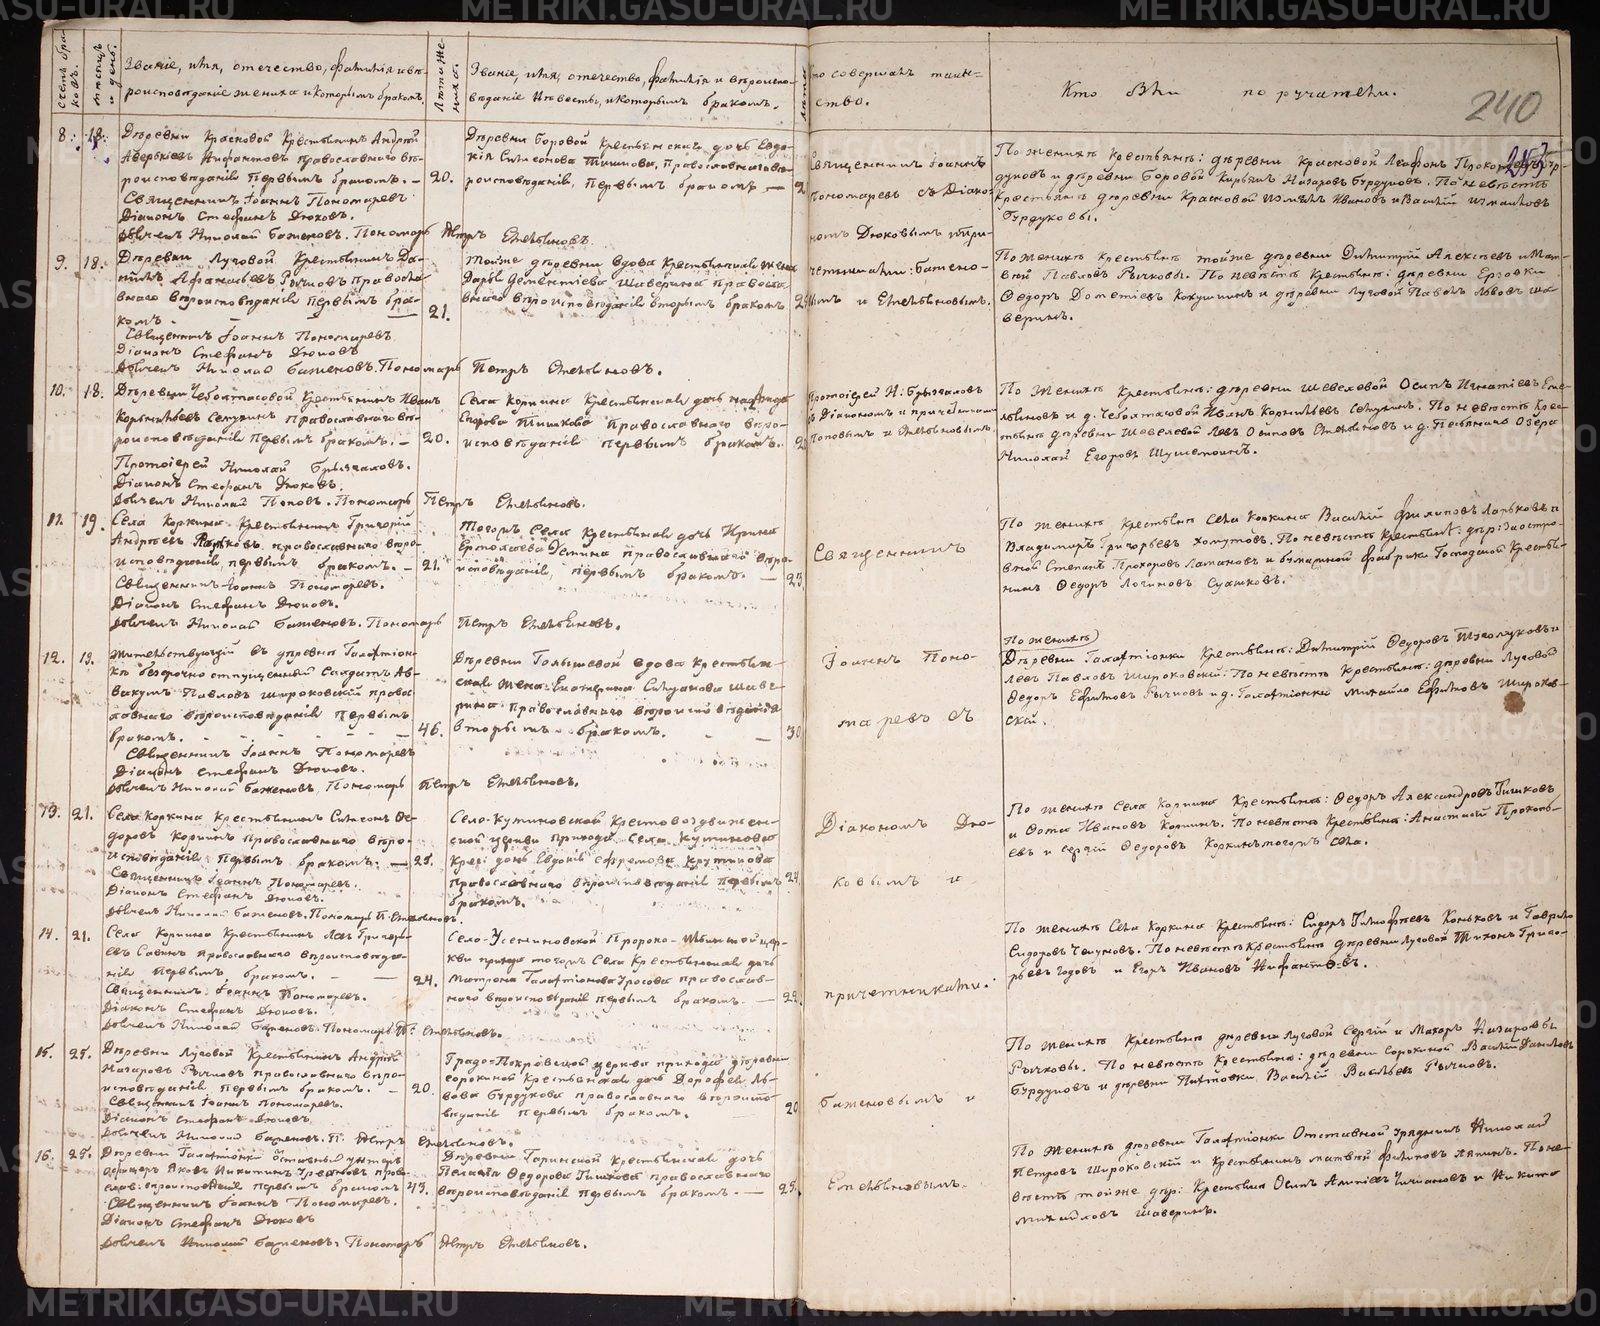 счетъ бра-
ковъ.
мѣсяцъ
и день.
Званіе, имя, отечество, фамилія и вѣ-
роисповѣданіе жениха и которымъ бракомъ.
Лѣта же-
ниха.
Званіе, имя, отечество, фамилія и вѣроиспо-
вѣданіе Невѣсты, и которымъ бракомъ.
Лѣта
то совершалъ таин-
ство.
Кто были поручатели.
240
253
8. 18.
Деревни Красновой Крестьянинъ Андрей
православнаго вѣ-
роисповѣданія Первымъ бракомъ. —
20.
Священникъ Іоаннъ Пономаревъ
Діаконъ Стефанъ Дюковъ.
Николай Баженовъ. Пономарь Петръ Емельяновъ.
Деревни Боровой Крестьянская дочь Евдо-
кія Симеонова Тишкова, Православнаго вѣ-
роисповѣданія, Первымъ бракомъ —
2
Священникъ Іоаннъ
Пономаревъ съ Діако-
номъ Дюковымъ и при-
четниками: Бажено-
вымъ и Емельяновымъ.
По женихѣ Крестьяне: деревни Красновой Агафонъ
и деревни Боровой Кирьянъ Назаровъ Бурдуковъ. По невѣстѣ
Крестьяне деревни Красновой Измаилъ Ивановъ и Василій Измаиловъ
Бурдуковы.
9. 18.
Деревни Луговой Крестьянинъ Да-
ніилъ Афанасьевъ Рычковъ Правосла-
внаго вѣроисповѣданія первымъ бра-
комъ. —
21.
Священникъ Іоаннъ Пономаревъ
Діаконъ Стефанъ Дюковъ
Николай Баженовъ. Пономарь Петръ Емельяновъ.
Тойже деревни вдова Крестьянская жена
Дарья Дементіева Шаверина правосла-
внаго вѣроисповѣданія вторымъ бракомъ
2
По женихѣ Крестьяне тойже деревни Димитрій Алексѣевъ и Мат-
вей Павловъ Рычковы. По невѣстѣ Крестьяне: деревни Ерзовки
Ѳедоръ Дометіевъ Кокушкинъ и деревни Луговой Павелъ Львовъ Ша-
веринъ.
10. 18.
Деревни Чеботаевой Крестьянинъ Иванъ
Корнильевъ православнаго вѣ-
роисповѣданія первымъ бракомъ. —
20.
Протоіерей Николай Брызгаловъ.
Діаконъ Стефанъ Дюковъ.
Николай Поповъ. Пономарь Петръ Емельяновъ.
Села Коркина Крестьянская дочь
Егорова Тишкова православнаго вѣро-
исповѣданія первымъ бракомъ.
2
Протоіерей Н. Брызгаловъ
съ Діакономъ и причетниками
Поповымъ и Емельяновымъ.
По Женихѣ Крестьяне: деревни Шевелевой Осипъ Игнатіевъ Еме-
льяновъ и д. Чеботаевой Иванъ Корнильевъ. По невѣстѣ Крес-
тьяне деревни Шевелевой Левъ Осиповъ Емельяновъ и д. Песьянаго Озера
Николай Егоровъ Шушемоинъ.
11. 19.
Села Коркина Крестьянинъ Григорій
Андреевъ православнаго вѣро-
исповѣданія первымъ бракомъ. —
21.
Священникъ Іоаннъ Пономаревъ.
Діаконъ Стефанъ Дюковъ.
Николай Баженовъ. Пономарь Петръ Емельяновъ.
Тогожъ Села Крестьянская дочь Ирина
Ермолаева православнаго вѣро-
исповѣданія, первымъ бракомъ. —
23.
Священникъ
По женихѣ Крестьяне Села Коркина Василій Филиповъ и
Владимиръ Григорьевъ Хомутовъ. По невѣстѣ Крестьяне: дер: Заостро-
вной Степанъ Прохоровъ Ламановъ и бумажной фабрики Господской Крестья-
нинъ Ѳедоръ Логиновъ Сушковъ.
12. 19.
Жительствующій въ деревни Галактіон-
кѣ безсрочно отпущенный Солдатъ Ав-
вакумъ Павловъ Широковскій право-
славнаго вѣроисповѣданія первымъ
бракомъ. —
46.
Священникъ Іоаннъ Пономаревъ
Діаконъ Стефанъ Дюковъ.
Николай Баженовъ. Пономарь Петръ Емельяновъ.
Деревни Голышевой вдова Крестьян-
ская жена Екатерина Шаве-
рина Православнаго вѣроисповѣданія
вторымъ бракомъ. —
30
Іоаннъ Поно-
маревъ съ
По женихѣ
Деревни Галактіонки Крестьяне: Димитрій Ѳедоровъ и
Левъ Павловъ Широковскій: По невѣстѣ Крестьяне: деревни Луговой
Ѳедоръ Ефимовъ Рычковъ и д. Галактіонки Михайло Ефимовъ Широков-
скій.
13. 21.
Села Коркина Крестьянинъ Симеонъ Ѳе-
доровъ Коркинъ православнаго вѣро-
исповѣданія первымъ бракомъ. —
Священникъ Іоаннъ Пономаревъ.
Діаконъ Стефанъ Дюковъ.
Николай Баженовъ. Пономарь П. Емельяновъ.
Село-Кутиновской Крестовоздвижен-
ской церкви прихода Села
Крес: дочь Евдокія Ефремова
Православнаго вѣроисповѣданія первымъ
бракомъ.
Діакономъ Дю-
ковымъ и
По женихѣ Села Коркина Крестьяне: Ѳедоръ Александровъ Тишковъ
и Фотій Ивановъ Коркинъ. По невѣстѣ Крестьяне: Анастасій Прокопь-
евъ и Сергій Ѳедоровъ Коркинъ тогожъ села.
14. 21.
Села Коркина Крестьянинъ Левъ Григорь-
евъ Савинъ православнаго вѣроисповѣда-
нія первымъ бракомъ. —
24.
Священникъ: Іоаннъ Пономаревъ.
Діаконъ Стефанъ Дюковъ.
Николай Баженовъ. Пономарь П. Емельяновъ.
Село-Усениновской Пророко-Ильинской цер-
кви прихода тогожъ Села Крестьянская дочь
Матрона Галактіонова Уросова православ-
наго вѣроисповѣданія первымъ бракомъ. —
22.
причетниками:
По женихѣ Села Коркина Крестьяне: Сидоръ Тимофѣевъ Коньковъ и Гаврило
Сидоровъ Чекуновъ. По невѣстѣ Крестьяне деревни Луговой Тихонъ Григо-
рьевъ Годовъ и Егоръ Ивановъ Нифантовъ.
15. 25.
Деревни Луговой Крестьянинъ Андрей
Назаровъ Рычковъ православнаго вѣро-
исповѣданія первымъ бракомъ. —
20
Священникъ Іоаннъ Пономаревъ.
Діаконъ Стефанъ Дюковъ.
Николай Баженовъ. П. Петръ Емельяновъ.
Градо-Покровской церкви прихода деревни
Сорокиной Крестьянская дочь Дорофея Ль-
вова Бурдукова православнаго вѣроиспо-
вѣданія первымъ бракомъ.
20
Баженовымъ и
По женихѣ Крестьяне деревни Луговой Сергій и Макаръ Назаровы
Рычковы. По невѣстѣ Крестьяне: деревни Сорокиной Василій Даниловъ
Бурдуковъ и деревни Василій Васильевъ Рычковъ.
16. 25.
Деревни Галактіонки Отставной унтеръ
офицеръ Яковъ Никитинъ прав-
слав: вѣроисповѣданія первымъ бракомъ
43.
Священникъ Іоаннъ Пономаревъ.
Діаконъ Стефанъ Дюковъ
Николай Баженовъ: Пономарь Петръ Емельяновъ.
Деревни Гаринской Крестьянская дочь
Пелагія Ѳедорова Тишкова православнаго
вѣроисповѣданія первымъ бракомъ. —
25.
Емельяновымъ.
По Женихѣ деревни Галактіонки Отставной Урядникъ Николай
Петровъ Широковскій и Крестьянинъ Матвѣй Филиповъ Ляпинъ. По не-
вѣстѣ тойже дер: Крестьяне Осипъ и Никита
Михайловъ Шаверинъ.
METRIKI.GASO-URAL.RU